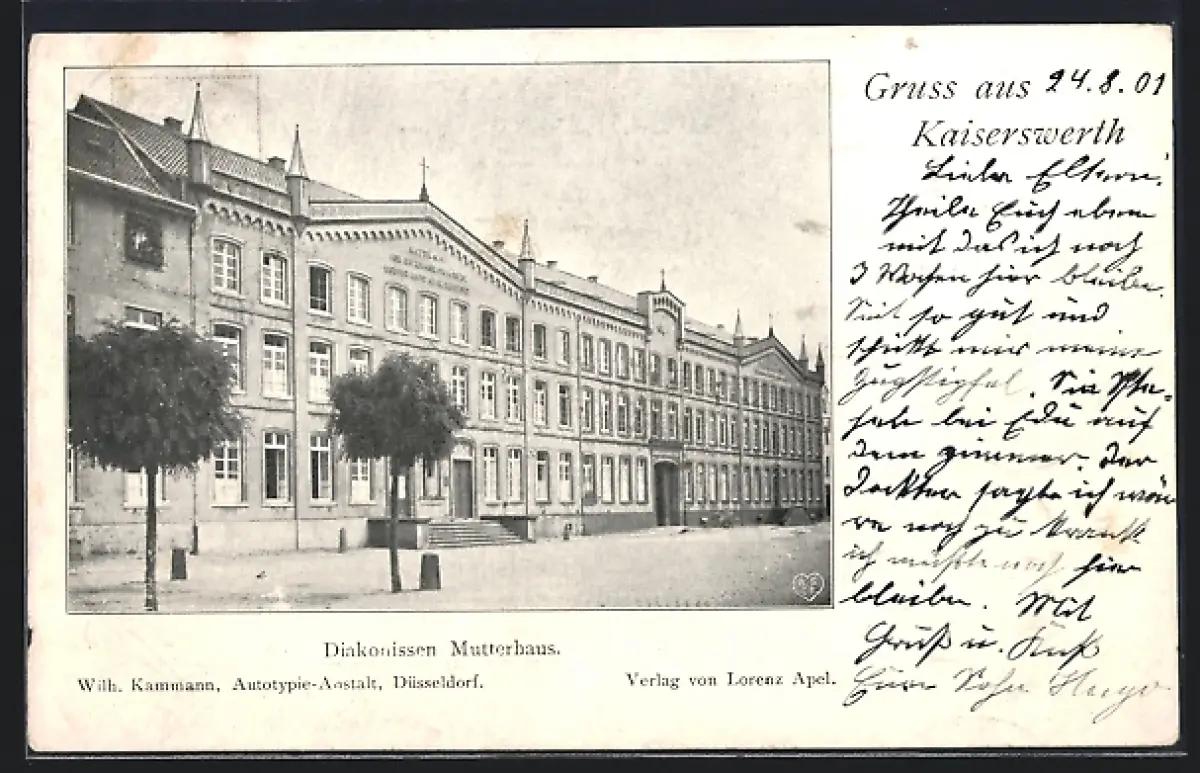 Gruss aus 24.8.01
Kaiserswerth
Liebe Eltern!
Theile Euch eben
mit das ich noch
3 Wochen hier bleibe.
Seit so gut und
schikt mir meine
Sie
bei Edu auf
dem Zimmer. Der
Docktor sagte ich wäh
re noch zu krank
ich müßte noch hier
bleiben. Mit
Gruß u. Kuß
Euer Sohn Hugo
Diakonissen Mutterhaus.
Wilh. Kammann, Autotypie-Anstalt, Düsseldorf.
Verlag von Lorenz Apel.